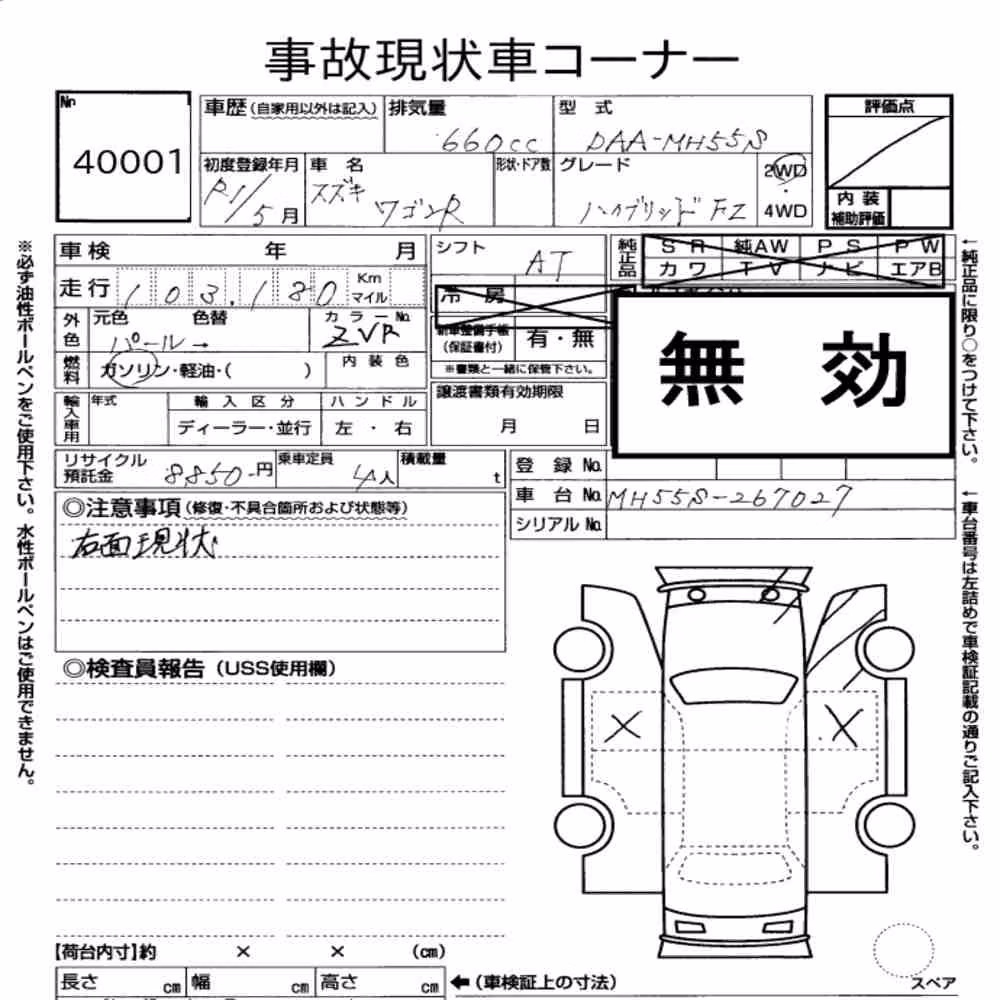 事故現状車コーナー
No 40001
車歴(自家用以外は記入)
排気量 660cc
型式 DAA-MH55S
評価点
初度登録年月 R1/5月
車名 スズキ ワゴンR
形状・ドア数
グレード ハイブリッドFZ
2WD・4WD
内装補助評価
車検 年 月
シフト AT
純正品
SR 純AW PS PW
カワ TV ナビ エアB
走行 103,180 Km マイル
冷房
外色 元色 パール→ 色替
カラーNo. ZVR
(保証書付) 有・無
※書類と一緒に保管下さい。
無効
燃料 ガソリン・軽油・( )
内装色
輸入車用 年式
輸入区分 ディーラー・並行
ハンドル 左・右
譲渡書類有効期限 月 日
リサイクル預託金 8850-円
乗車定員 4人
積載量 t
登録No.
車台No. MH55S-267027
シリアルNo.
◎注意事項(修復・不具合箇所および状態等)
右面現状
◎検査員報告(USS使用欄)
【荷台内寸】約 × × (cm)
長さ cm 幅 cm 高さ cm
←(車検証上の寸法)
スペア
※必ず油性ボールペンをご使用下さい。水性ボールペンはご使用できません。
←純正品に限り○をつけて下さい。
←車台番号は左詰めで車検証記載の通りご記入下さい。